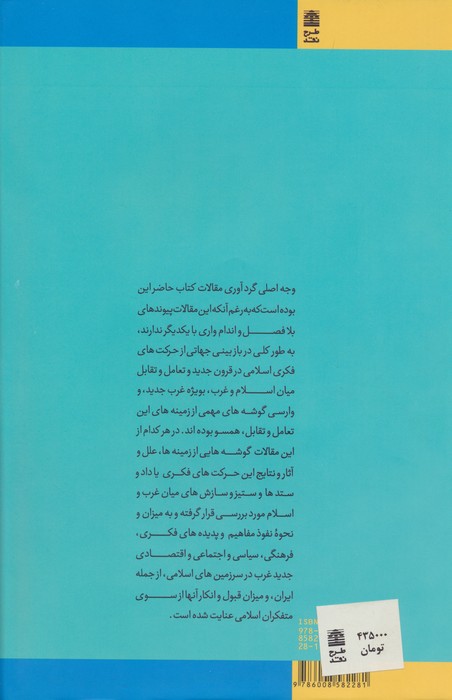 طرح
نقد
وجه اصلی گردآوری مقالات کتاب حاضر این
بوده است که به رغم آنکه این مقالات پیوندهای
بلافصل و اندام واری با یکدیگر ندارند،
به طور کلی در بازبینی جهاتی از حرکت های
فکری اسلامی در قرون جدید و تعامل و تقابل
میان اسلام و غرب، بویژه غرب جدید، و
وارسی گوشه های مهمی از زمینه های این
تعامل و تقابل، همسو بوده اند. در هر کدام از
این مقالات گوشه هایی از زمینه ها، علل و
آثار و نتایج این حرکت های فکری یا داد و
ستد ها و ستیز و سازش های میان غرب و
اسلام مورد بررسی قرار گرفته و به میزان و
نحوهٔ نفوذ مفاهیم و پدیده های فکری،
فرهنگی، سیاسی و اجتماعی و اقتصادی
جدید غرب در سرزمین های اسلامی، از جمله
ایران، و میزان قبول و انکار آنها از سوی
متفکران اسلامی عنایت شده است.
ISBN
978-
8582
28-1
طرح
نقد
۴۳۵۰۰۰
تومان
9 786008 582281